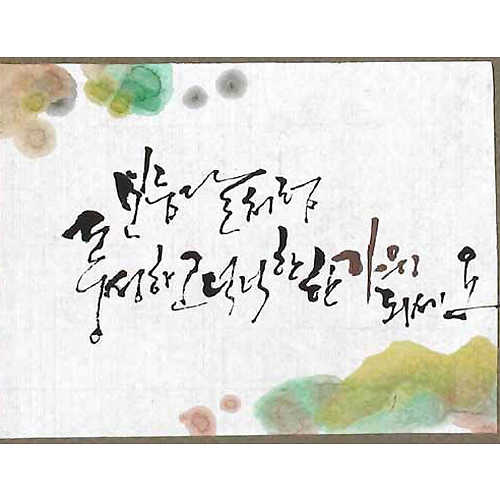 보름달처럼
풍성하고 넉넉한 한가위 되세요